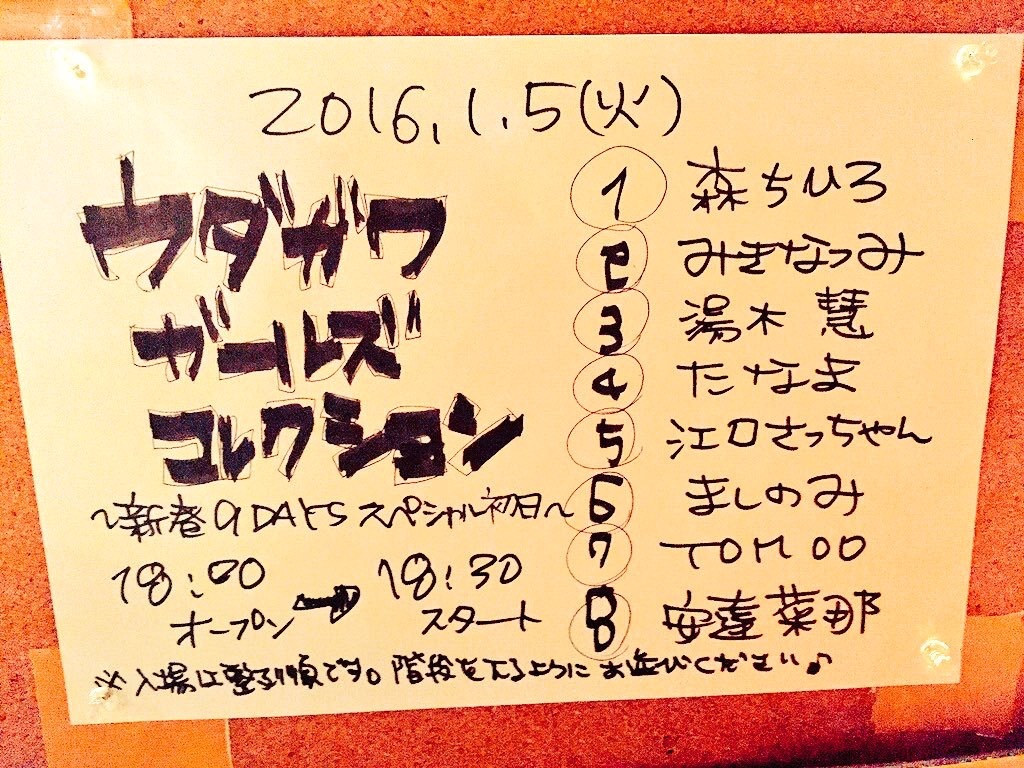 2016.1.5(火)
ウダガワ
ガールズ
コレクション
~新春9DAYSスペシャル初日~
18:00 → 18:30
オープン スタート
1 森ちひろ
2 みきなつみ
3 湯木 慧
4 たなま
5 江口さっちゃん
6 ましのみ
7 TOMOO
8 安達菜那
※入場は整列順です。階段を上るようにお並びください♪